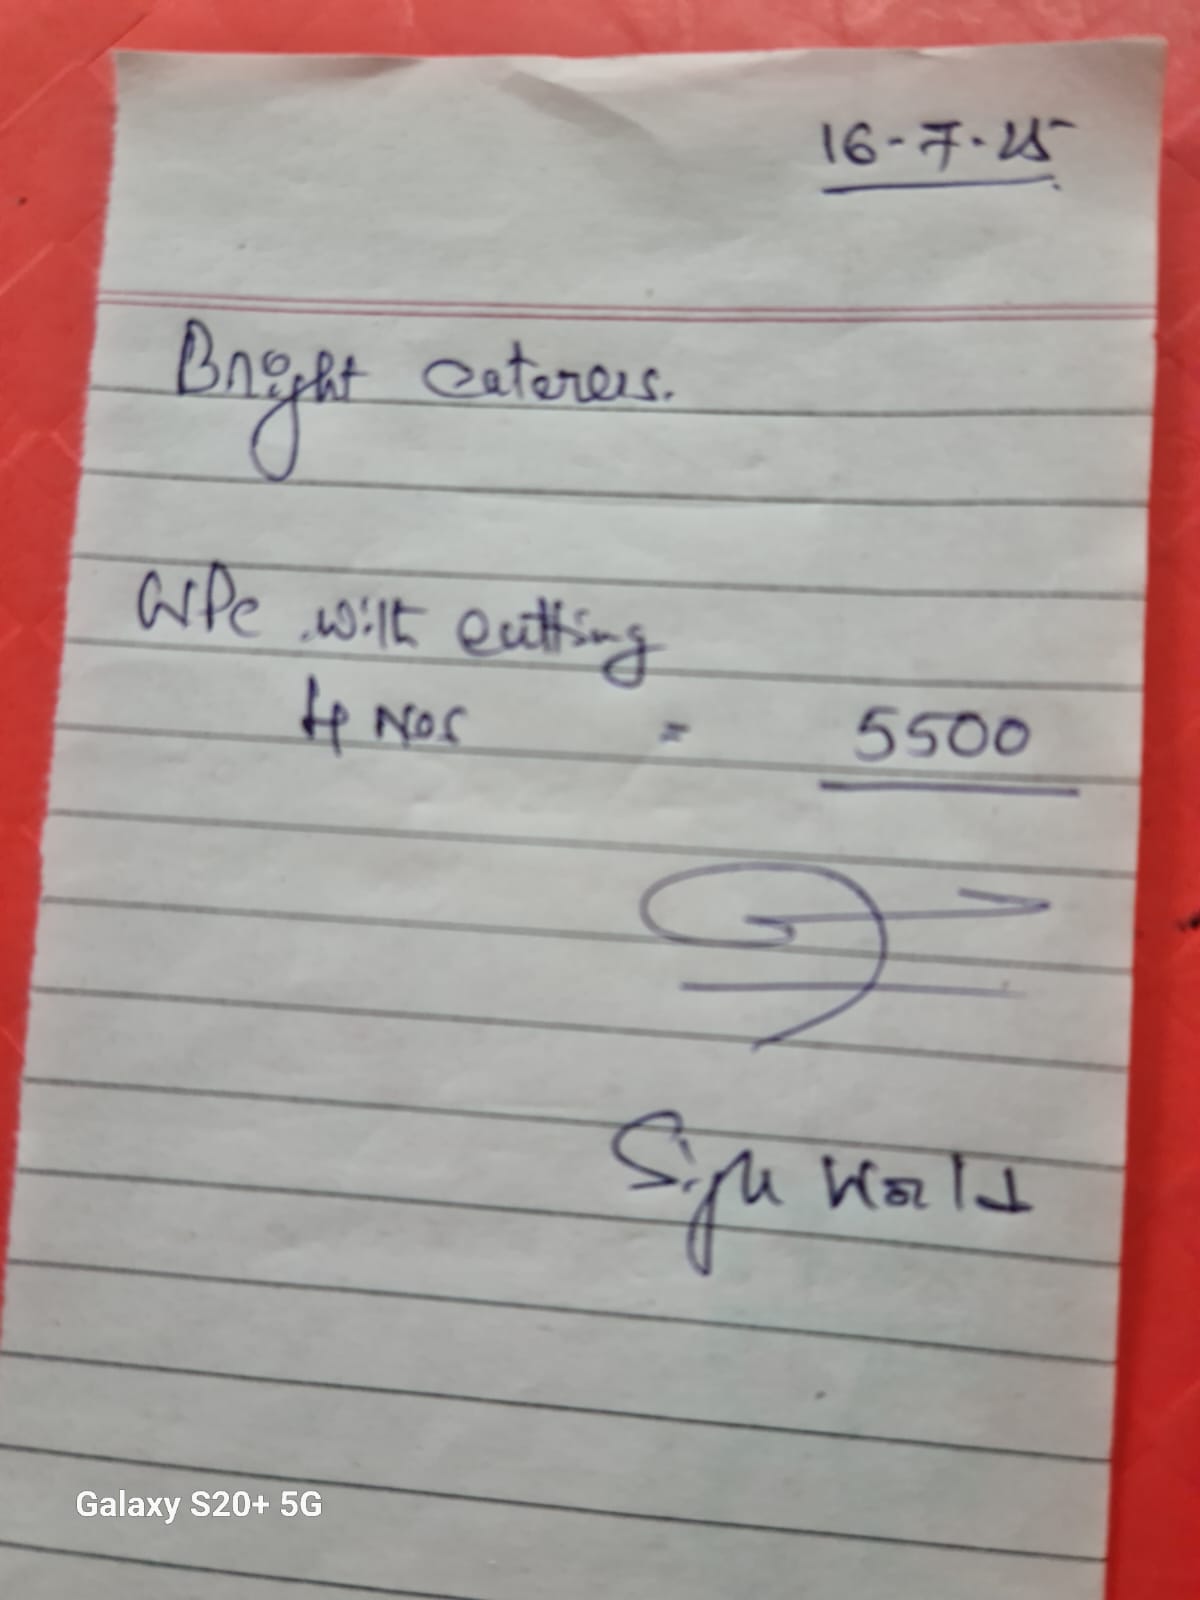 16-7-25
Bright caterers.
WPC with cutting
4 Nos = 5500
Sign World
Galaxy S20+ 5G